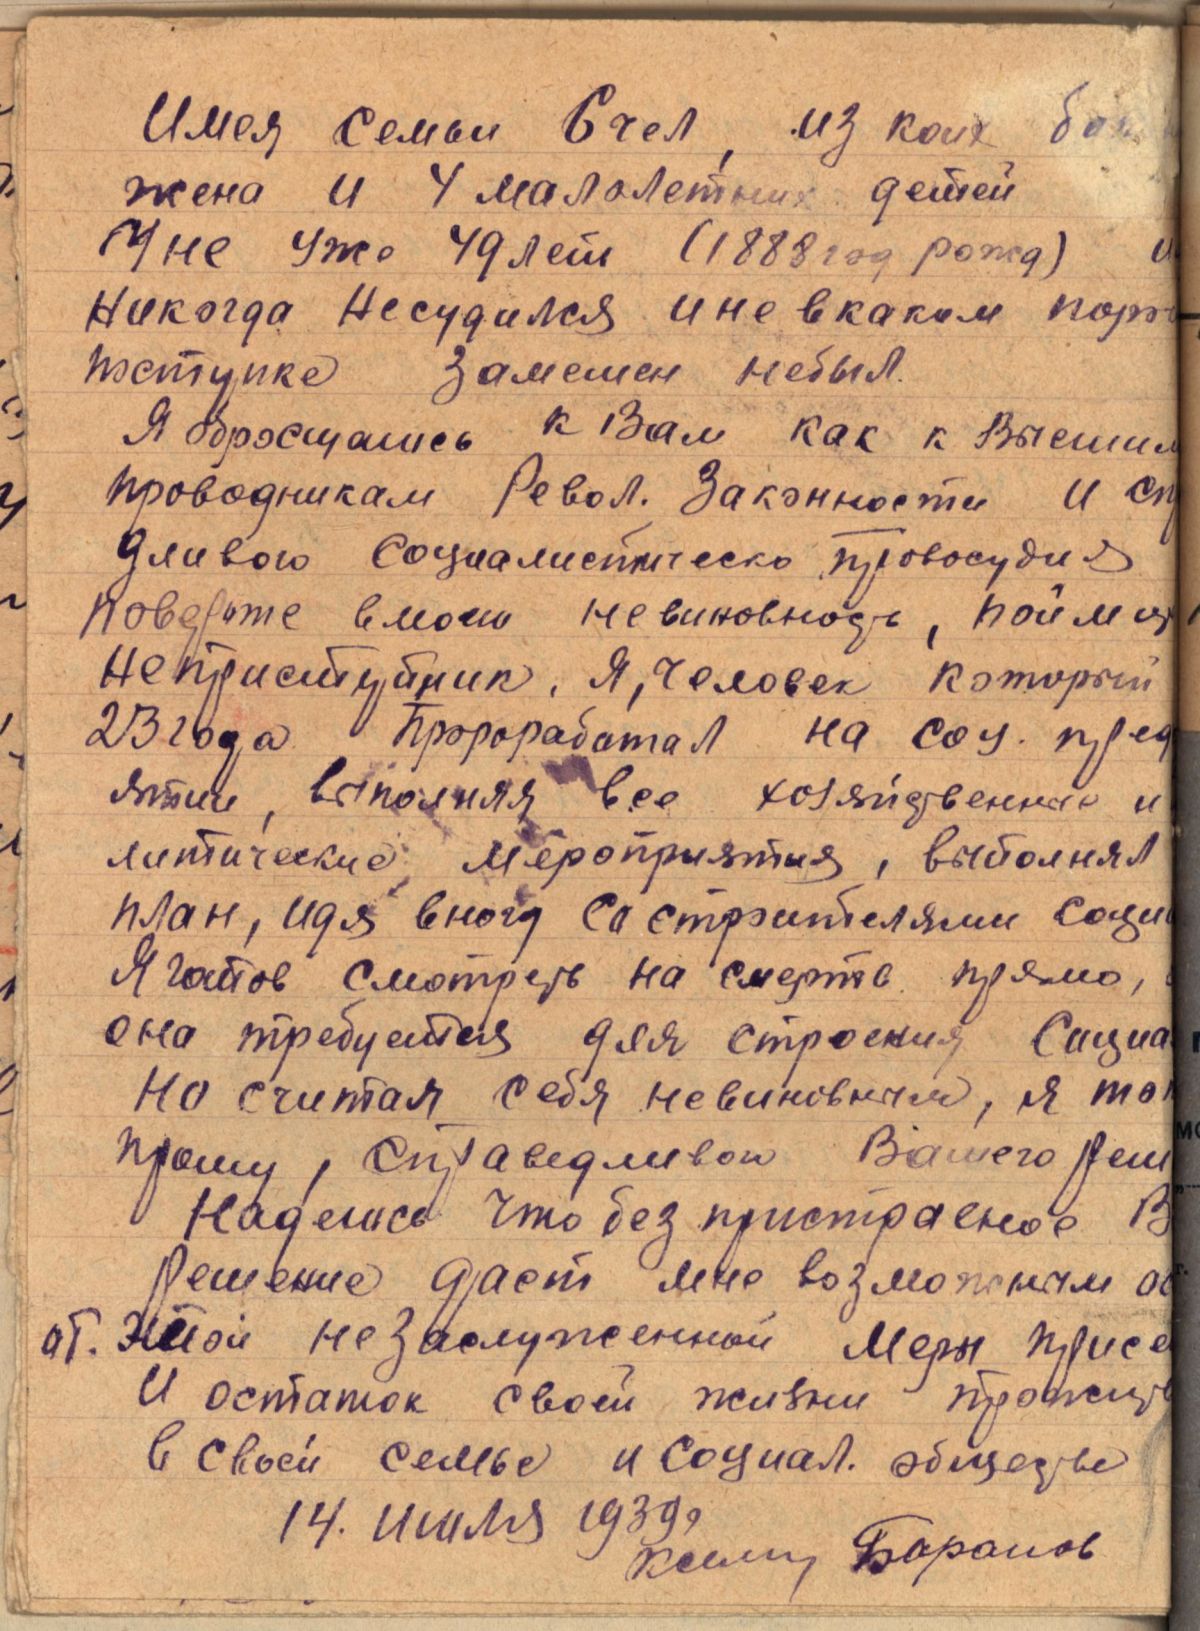 Имея семьи 6 чел, из коих
жена и 4 малолетних детей
Мне уже 49 лет (1888 год рожд) и
никогда несудился и не вкаком
поступке замешен небыл.
Я обращаюсь к Вам как к Высшим
проводникам Револ. Законности и спр
дливого социалистическо провосудия
поверьте вмою невиновность, пойми
неприступник, Я, человек который
23 года проработал на соц. пред
ятии, выполняя все хозяйственные и
литические мероприятия, выполнял
план, идя вногу со строителями социа
Я готов смотреть на смерть прямо,
она требуется для строения Социа
Но считая себя невиновным, я то
прошу, справедливою Вашего реш
Надеюсь что без пристрасное В
решение даст мне возможным ос
от. этой незаслуженной меры
И остаток своей жизни прожить
в своей семье и социал. общестье
14. июля 1939г
Баранов